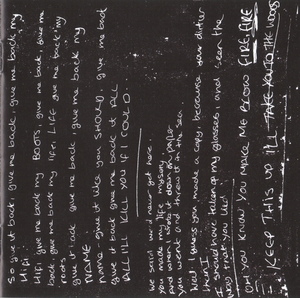 So give back, give me back, give me back my
Hifi
Hifi give me back my BOOTS, give me back, give me
back give me back my life, LIFE give me back my
roots
give it back give me back, give me back my
NAME
name - give it like you SHOULD, give me back
give it back give me back it ALL
ALL I'LL KILL YOU IF I COULD.
we said we'd never get here
you made my life misery
and wrote it all down on paper
you went and threw it in the sea.
And I guess you made a copy, because your
then I
I should have taken of my glasses, and seen the
way that you lied
OH YOU KNOW YOU MAKE ME BLOW FIRE, FIRE
KEEP THIS UP I'LL TAKE YOU TO THE WOODS